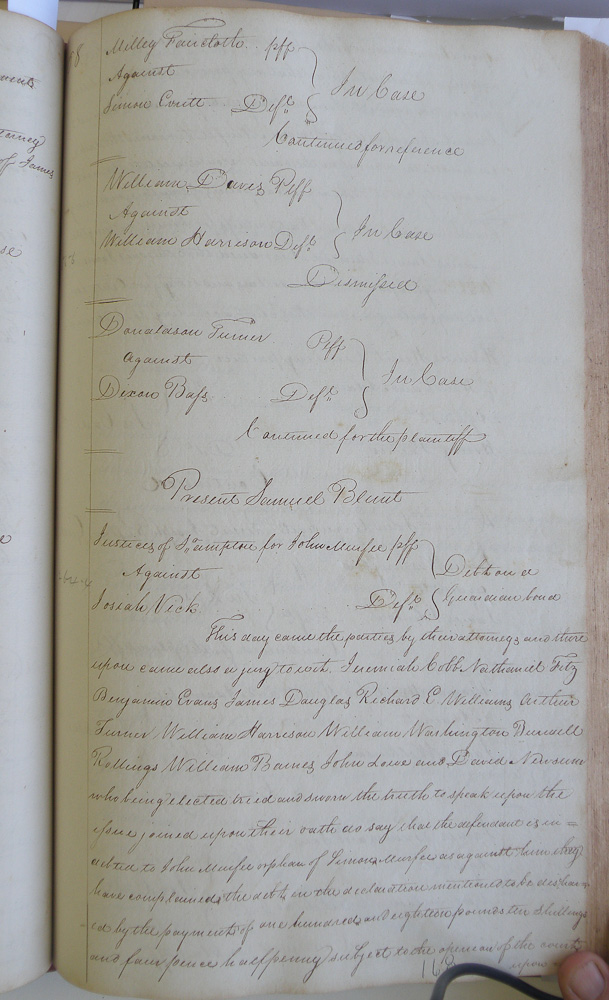 Milley Faircloth. Plff
Against
Simon Everitt Deft.
In Case
Continued for reference
William Daves Plff
Against
William Harrison Deft.
In Case
Dismissed
Donaldson Turner Plff
Against
Dixon Bass Deft.
In Case
Continued for the plaintiff
Present Samuel Blunt
Justices of So.ampton for John Murfee plff
Against
Josiah Vick Deft.
Debt on a
Guardian bond
This day came the parties by their attorneys and there
upon came also a jury to wit. Jeremiah Cobb Nathaniel Fitz
Benjamin Evans James Douglas Richard E. Williams Arthur
Turner William Harrison William Washington
Rollings William Barnes John Lowe and David Newsum
who being elected tried and sworn the truth to speak upon the
issue joined upon their oath do say that the defendant is in=
debted to John Murfee orphan of Simon Murfee as against him
have complained, the debt in the declaration mentioned to be dischar
ed by the payment of one hundred and eighteen pounds ten shillings
and four pence half penny subject to the opinion of the court
upon